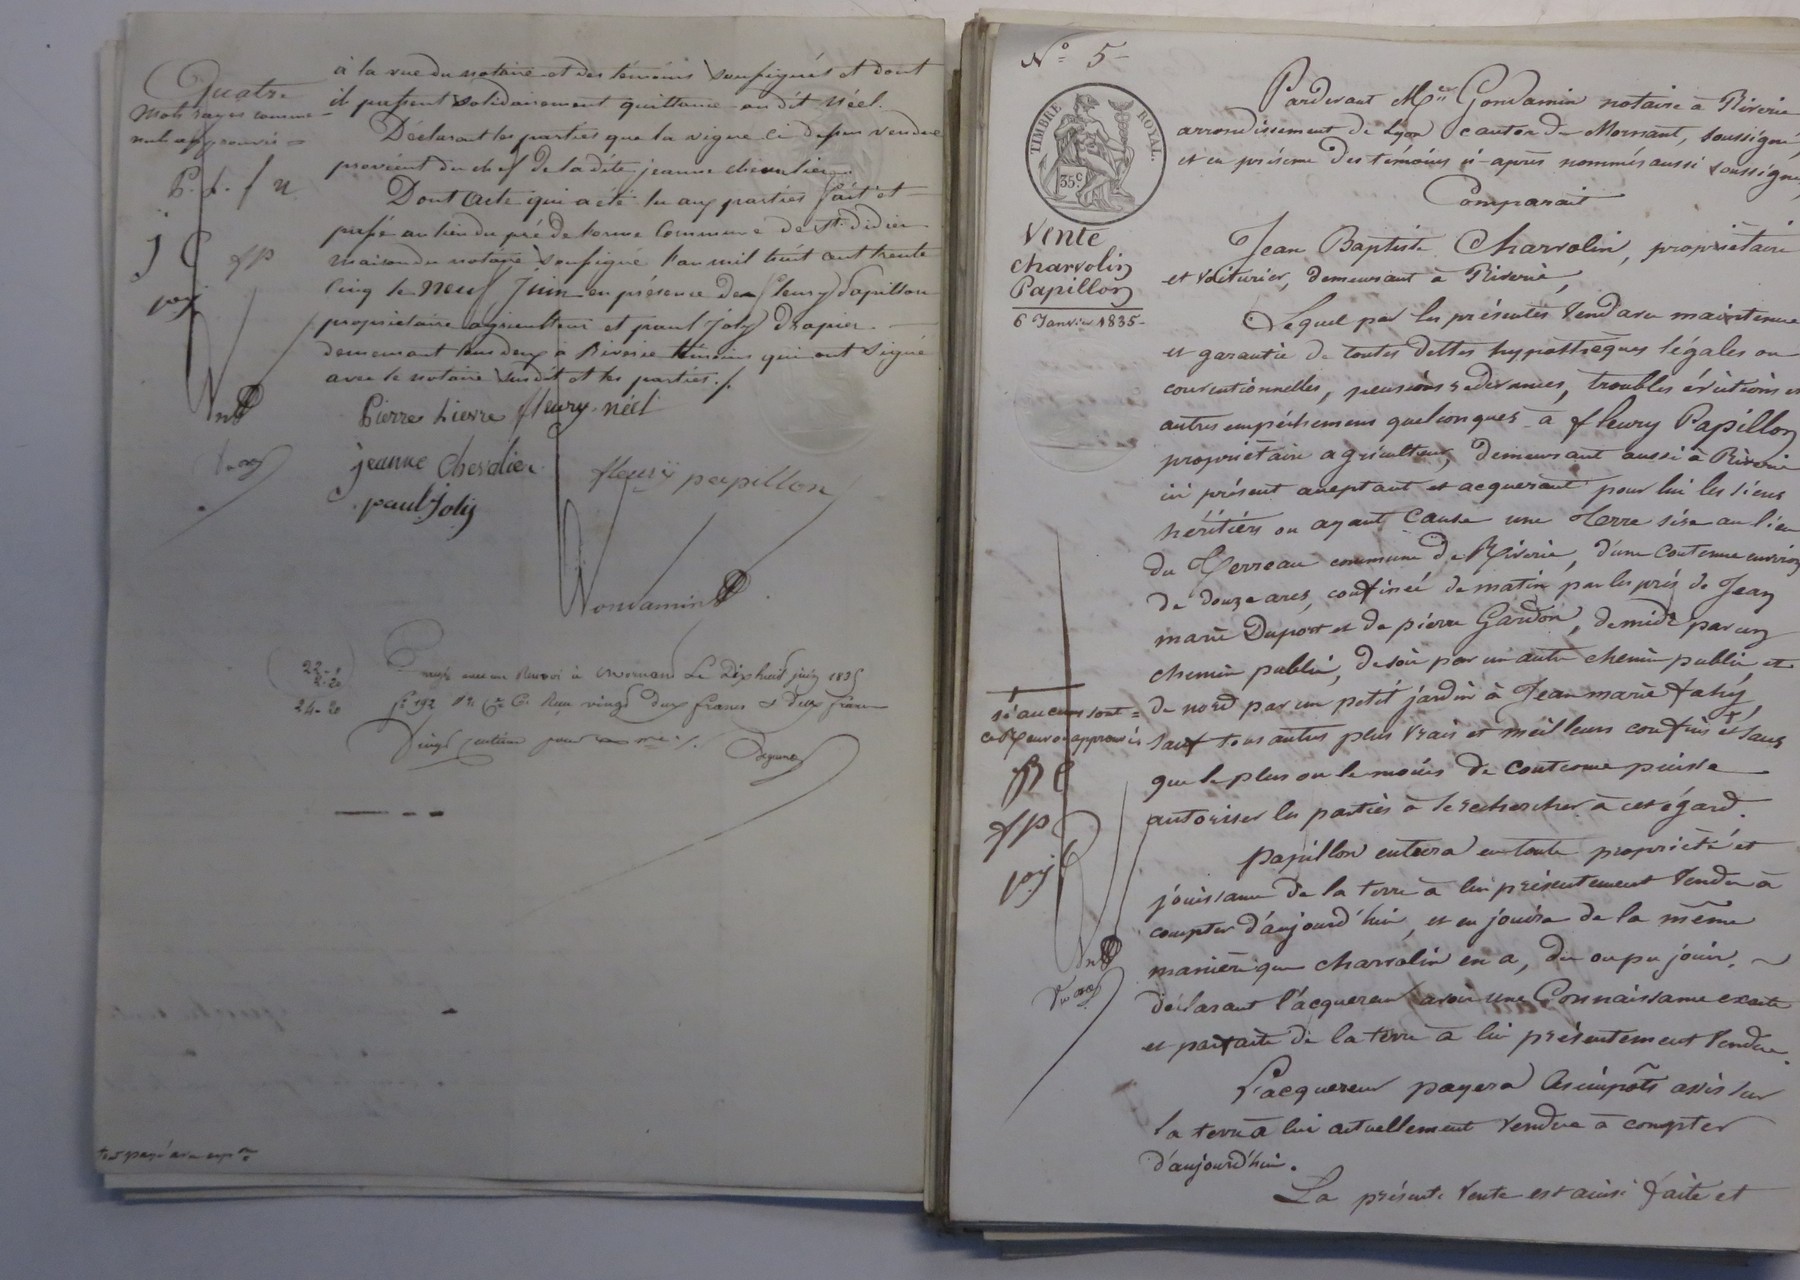 à la vue du notaire et des témoins soussignés et dont
ils passent solidairement quittance audit Néel.
Déclarant les parties que la vigne ci dessus vendue
provient du chef de ladite jeanne chevalier.
Dont acte qui a été lu aux parties fait et
passé au lieu du pré de lorme Commune de St. didier
maison du notaire soussigné l'an mil huit cent trente
cinq le neuf Juin en présence de fleury papillon
propriétaire agriculteur et paul Joly drapier
demeurant tous deux à Riverie témoins qui ont signé
avec le notaire susdit et les parties ./.
Quatre
mots rayés comme
nuls approuvés =
j C
fp
pj
Pierre fleury néel
jeanne Chevalier
fleury papillon
paul Joly
Gondamin
22-"
2-20
24-20
Le Dix huit juin 1835
vingt deux francs & deux francs
Vingt centimes pour
N° 5
TIMBRE ROYAL.
35c
Vente
Charvolin
Papillon
6 Janvier 1835-
Pardevant Me Gondamin notaire à Riverie
arrondissement de Lyon canton de Mornant, soussigné,
et en présence des témoins ci-après nommés aussi soussignés,
Comparait
Jean Baptiste Charvolin, propriétaire
et voiturier, demeurant à Riverie,
Lequel par les présentes vend avec maintenue
et garantie de toutes dettes hypothèques légales ou
conventionnelles, pensions redevances, troubles évictions et
autres empêchemens quelconques à fleury Papillon
propriétaire agriculteur, demeurant aussi à Riverie
ici présent acceptant et acquerant pour lui les siens
héritiers ou ayant cause une Terre sise au lieu
du Terreau commune de Riverie, d'une contenue environ
de douze ares, confinée de matin par les prés de Jean
marie Dupont et de pierre Gardon, de midi par un
chemin public, de soir par un autre chemin public, et
de nord par un petit jardin à Jean marie
sauf tous autres plus vrais et meilleurs confins + et sans
que le plus ou le moins de contenue puisse
autoriser les parties à se rechercher à cet égard.
+ si aucuns sont =
ce renvoi approuvé
fp
pj
papillon entrera en toute propriété et
jouissance de la terre à lui présentement vendue à
compter d'aujourd'hui, et en jouira de la même
manière que charvolin en a, du ou pu jouir,
déclarant l'acquereur avoir une Connaissance exacte
et parfaite de la terre à lui présentement vendue.
L'acquereur payera les impôts assis sur
la terre à lui actuellement vendue à compter
d'aujourd'hui.
La présente vente est ainsi faite et